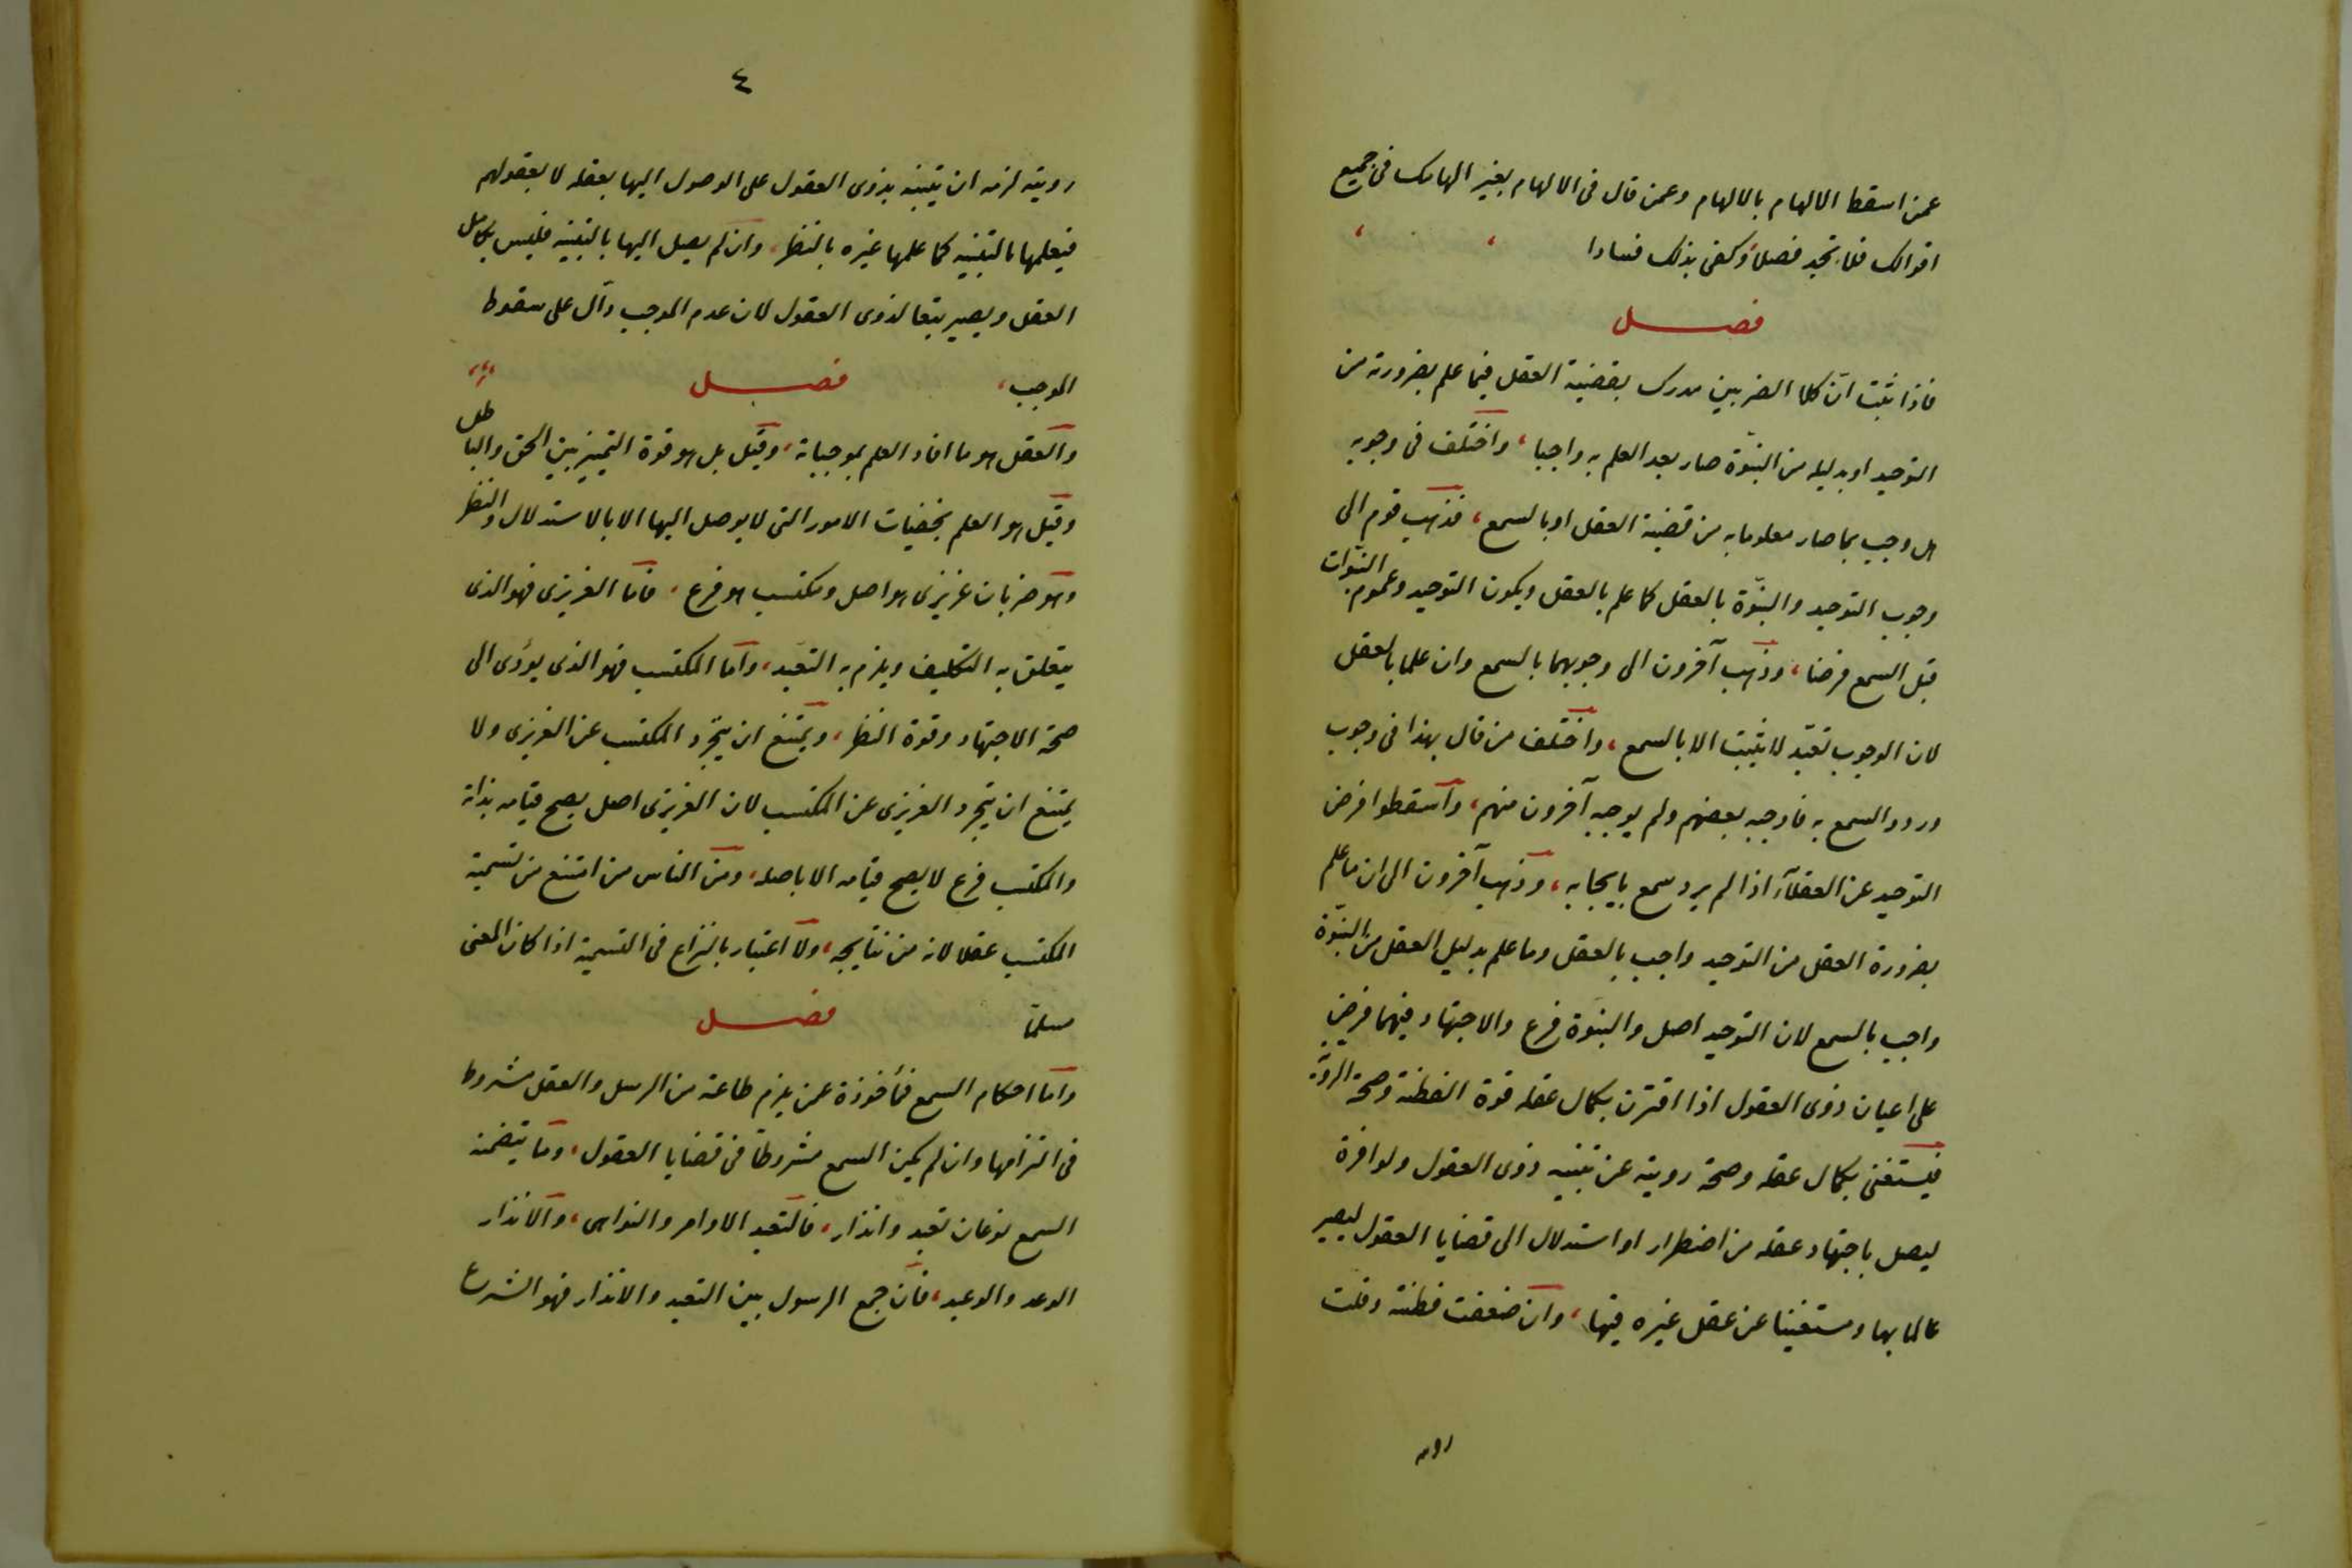 عمن اسقط الالهام بالالهام وعمن قال فى الالهام بغير الهامك فى جميع
اقوالك فلا تجد فصلا وكفى بذلك فسادا
فصل
فاذا ثبت ان كلا الضربين مدرك بقضية العقل فيما علم بضرورته من
التوحيد او بدليله من النبوّة صار بعد العلم به واجبا، واختلف فى وجوبه
هل وجب بما صار معلوما به من قضية العقل او بالسمع، فذهب قوم الى
وجوب التوحيد والنبوّة بالعقل كما علم بالعقل ويكون التوحيد وعموم النبوّات
قبل السمع فرضا، وذهب آخرون الى وجوبهما بالسمع وان علما بالعقل
لان الوجوب تعبّد لا يثبت الا بالسمع، واختلف من قال بهذا فى وجوب
ورود السمع به فاوجبه بعضهم ولم يوجبه آخرون منهم، واسقطوا فرض
التوحيد عن العقلآء اذا لم يرد سمع بايجابه، وذهب آخرون الى ان ما علم
بضرورة العقل من التوحيد واجب بالعقل وما علم بدليل العقل من النبوّة
واجب بالسمع لان التوحيد اصل والنبوّة فرع والاجتهاد فيهما فرض
على اعيان ذوى العقول اذا اقترن بكمال عقله قوة الفطنة وصحة الرويّة
فيستغنى بكمال عقله وصحة رويته عن تنبيه ذوى العقول ولوافرة
ليصل باجتهاد عقله من اضطرار او استدلال الى قضايا العقول ليصير
عالما بها ومستغنيا عن عقل غيره فيها، وان ضعفت فطنته وقلت
رويته
٤
رويته لزمه ان يتنبه بذوى العقول على الوصول اليها بعقله لا بعقولهم
فيعلمها بالتنبيه كما علمها غيره بالنظر، وان لم يصل اليها بالتنبيه فليس بكامل
العقل ويصير تبعا لذوى العقول لان عدم الموجب دآل على سقوط
الموجب، فصل
والعقل هو ما افاد العلم بموجباته، وقيل بل هو قوة التمييز بين الحق والباطل
وقيل هو العلم بخفيات الامور التى لا يوصل اليها الا بالاستدلال والنظر
وهو ضربان غريزى هو اصل ومكتسب هو فرع، فاما الغريزى فهو الذى
يتعلق به التكليف ويلزم به التعبد، واما المكتسب فهو الذى يؤدى الى
صحة الاجتهاد وقوة النظر، ويمتنع ان يتجرد المكتسب عن الغريزى ولا
يمتنع ان يتجرد الغريزى عن المكتسب لان الغريزى اصل يصح قيامه بذاته
والمكتسب فرع لا يصح قيامه الا باصله، ومن الناس من امتنع من تسمية
المكتسب عقلا لانه من نتايجه، ولا اعتبار بالنزاع فى التسمية اذا كان المعنى
مسلمًا فصل
واما احكام السمع فمأخوذة عمن يلزم طاعته من الرسل والعقل مشروط
فى التزامها وان لم يكن السمع مشروطا فى قضايا العقول، وما يتضمنه
السمع نوعان تعبد وانذار، فالتعبد الاوامر والنواهى، والانذار
الوعد والوعيد، فان جمع الرسول بين التعبد والانذار فهو الشرع